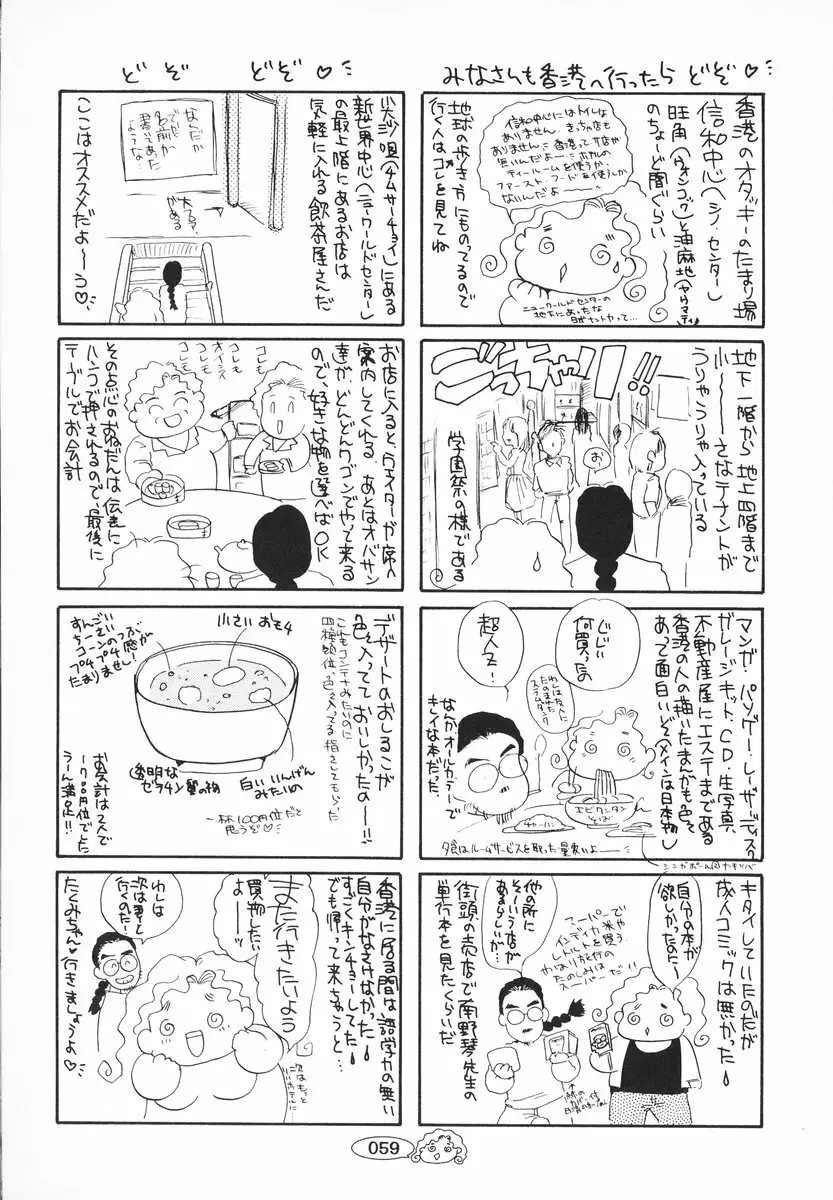 みなさんも香港へ行ったら どぞ♡
香港のオタッキーのたまり場
信和中心(シノ・センター)
旺角(ウォンコック)と油麻地(ヤウマティ)
のちょーど間ぐらい
地球の歩き方にものってるので
行く人はコレを見てね
信和中心にはトイレは
ありません きっちゃ店も
ありません 香港って店が
無いんだよー ホテルの
ティールームを使うか
ファーストフードを使うしか
ないんだよー
ニューワールドセンターの
地下にあったな
地下一階から地上四階まで
小ーーーさなテナントが
うりゃうりゃ入っている
ごっチャリ!!
お
学園祭の様である
マンガ・パソゲー・レーザーディスク
ガレージキット、CD・生写真、
不動産屋にエステまである
香港の人の描いたまんがも色々
あって面白いぞ(メインは日本物)
じじい
何買ったの
わしは友人に
たのまれた
スラムダンク
超人Z!
なんかオールカラーで
キレイな本だった。
エビワンタン
そば
夕食はルームサービスを取った 量多いよー
キタイしていたのだが
成人コミックは無かった
自分の本が
欲しかったのにー
スーパーで
インディカ米や
レトルトを買う
やはり旅行の
たのしみは
スーパーだ!!
他の所に
そーいう店が
あるらしいが…
街頭の売店で南野琴先生の
単行本を見たくらいだ
どぞ どぞ♡
尖沙咀(チムサーチョイ)にある
新世界中心(ニューワールドセンター)
の最上階にあるお店は
気軽に入れる飲茶屋さんだ
なんだか
でかく
名前が
書いてあった
ような
大スクリーンがある
ここはオススメだよーう♡
お店に入ると、ウェイターが席へ
案内してくれる。あとはオバサン
達が、どんどんワゴンでやって来る
ので、好きな物を選べばOK
コレも
オイシイ
コレも
コレも
その点心のおねだんは伝票に
ハンコで押されるので、最後に
テーブルでお会計
デザートのおしるこが
色々入ってて おいしかったのー!!
これもコンテナみたいのに
四種類位色々入ってる 指さしてもらった
小さいおモチ
すんごい
ちーさい
コーンのつぶ
プチプチ感が
たまりません!
透明な
ゼラチン質の物
白いいんげん
みたいの
一杯100円位だと
思うぞ♡
お会計は2人で
1700円位でした
うーん満足!!
香港に居る間は語学力の無い
自分がなさけなかった
すごくキンチョーしてた
でも帰って来ちゃうと…
また行きたいよう
買物したい
よーーッ
次はもっと
いいホテルに…
わしは
次は車で
行くのだ!
たくみちゃん♡行きましょうよ♡
059